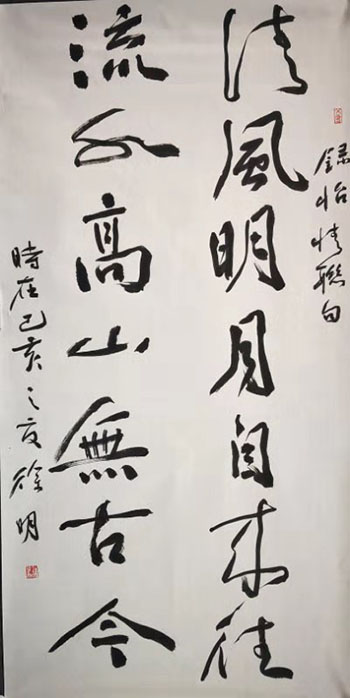 錄怡情聯句
清風明月自來往
流水高山無古今
時在己亥之夏徐明